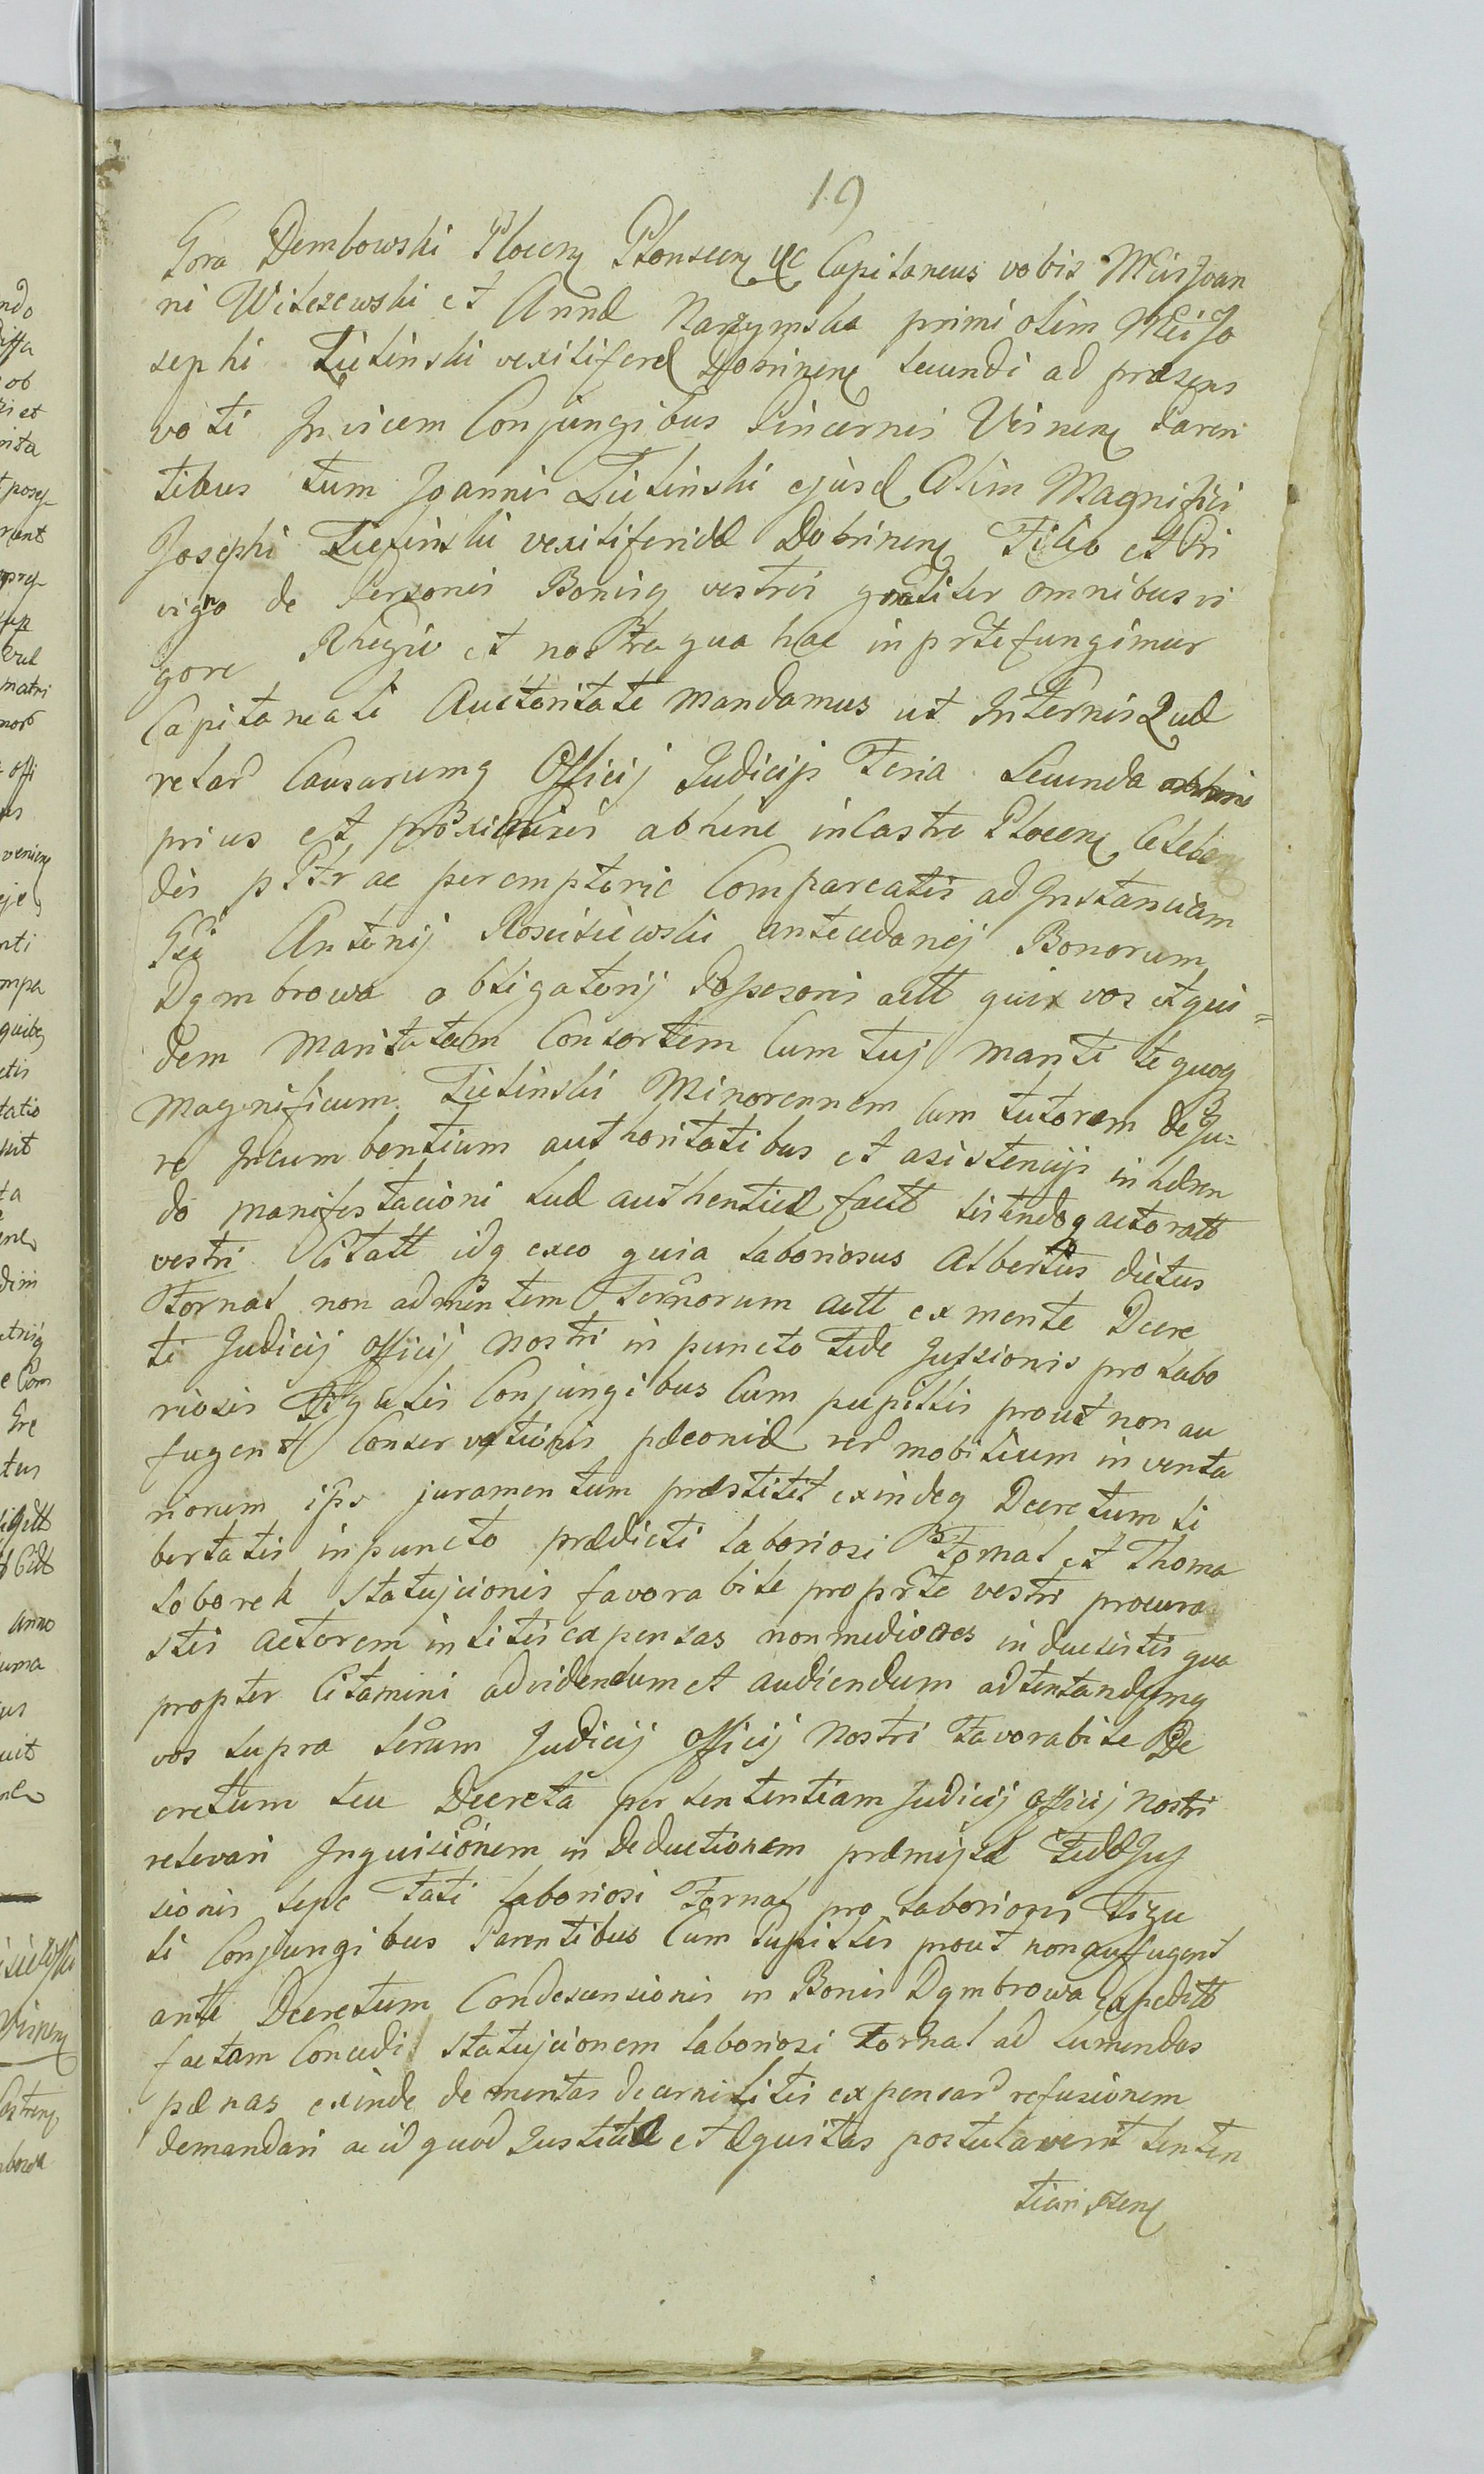 19
Gora Dembowski Plocen Plonscen &c Capitaneus vobis Mcis Joan
ni Witczewski et Annæ Narzymska primi olim Mci Jo
sephi Zieliński vexiliferæ Dobrinen secundi ad præsens
voti Invicem Conjungibus Pincernis Visnen Paren
tibus tum Joannis Zieliński ejusd Olim Magnifici
Josephi Zieliński vexiliferidæ Dobrinen Filio et Pri
vigno de Personis Bonisq vestris gnaliter omnibus vi
gore Rhegio et nostra qua hac in prte fungimur
Capitaneali Auctoritate mandamus ut In Ternis Quæ
relar Causarumq Officij Judicijs Feria Secunda
prius et proximius abhinc in Castro Plocen Celebran
dis pttr ac peremptorie Compareatis ad Instantiam
Gsi Antonij Rosciszewski antecedanej Bonorum
Dąmbrowa obligatorij Possesoris actt qui vos et qui=
dem Maritatam Consortem Cum tuj mariti te quoq
Magnificum Zieliński Minorennem cum tutorem de Ju=
re Incumbentium authoritatibus et asistencijs inhæren
do manifestacioni suæ authenticæ factt sistendoq actoratt
vestri Citatt idq exeo quia laboriosus Albertus dictus
Fornal non ad mentem Ternorum actt ex mente Decre
ti Judicij officij nostri in puncto Fide Jussionis pro labo
riosis Fizulis Conjungibus Cum pupillis prout non au
fugent Conservationis pæconiæ rer mobilium inventa
riorum ipso juramentum præstitit exindeq Decretum li
bertatis in puncto prædicti laboriosi Fornal et Thoma
Soborek statujcionis favorabile pro prte vestri procura
stis actorem in litis expensas non mediocres induxistis qua
propter Citamini ad videndum et audiendum ad tentandumq
vos supra Terum Judicij officij nostri Favorabile De
cretum seu Decreta per sententiam Judicij officij nostri
relevari Inquisicionem in Deductionem præmissæ Fide Jus
sionis sepe Fati laboriosi Fornal pro laboriosis Fizu
li Conjungibus Parentibus Cum Pupillis prout non aufugent
ante Decretum Condescensionis in Bonis Dąmbrowa expeditt
factam Concedi statujcionem laboriosi Fornal ad sumendas
pænas exinde demeritas decerni litis expensar refusionem
demandari ac id quod Justitiæ et Æquitas postulaverit senten
tiari